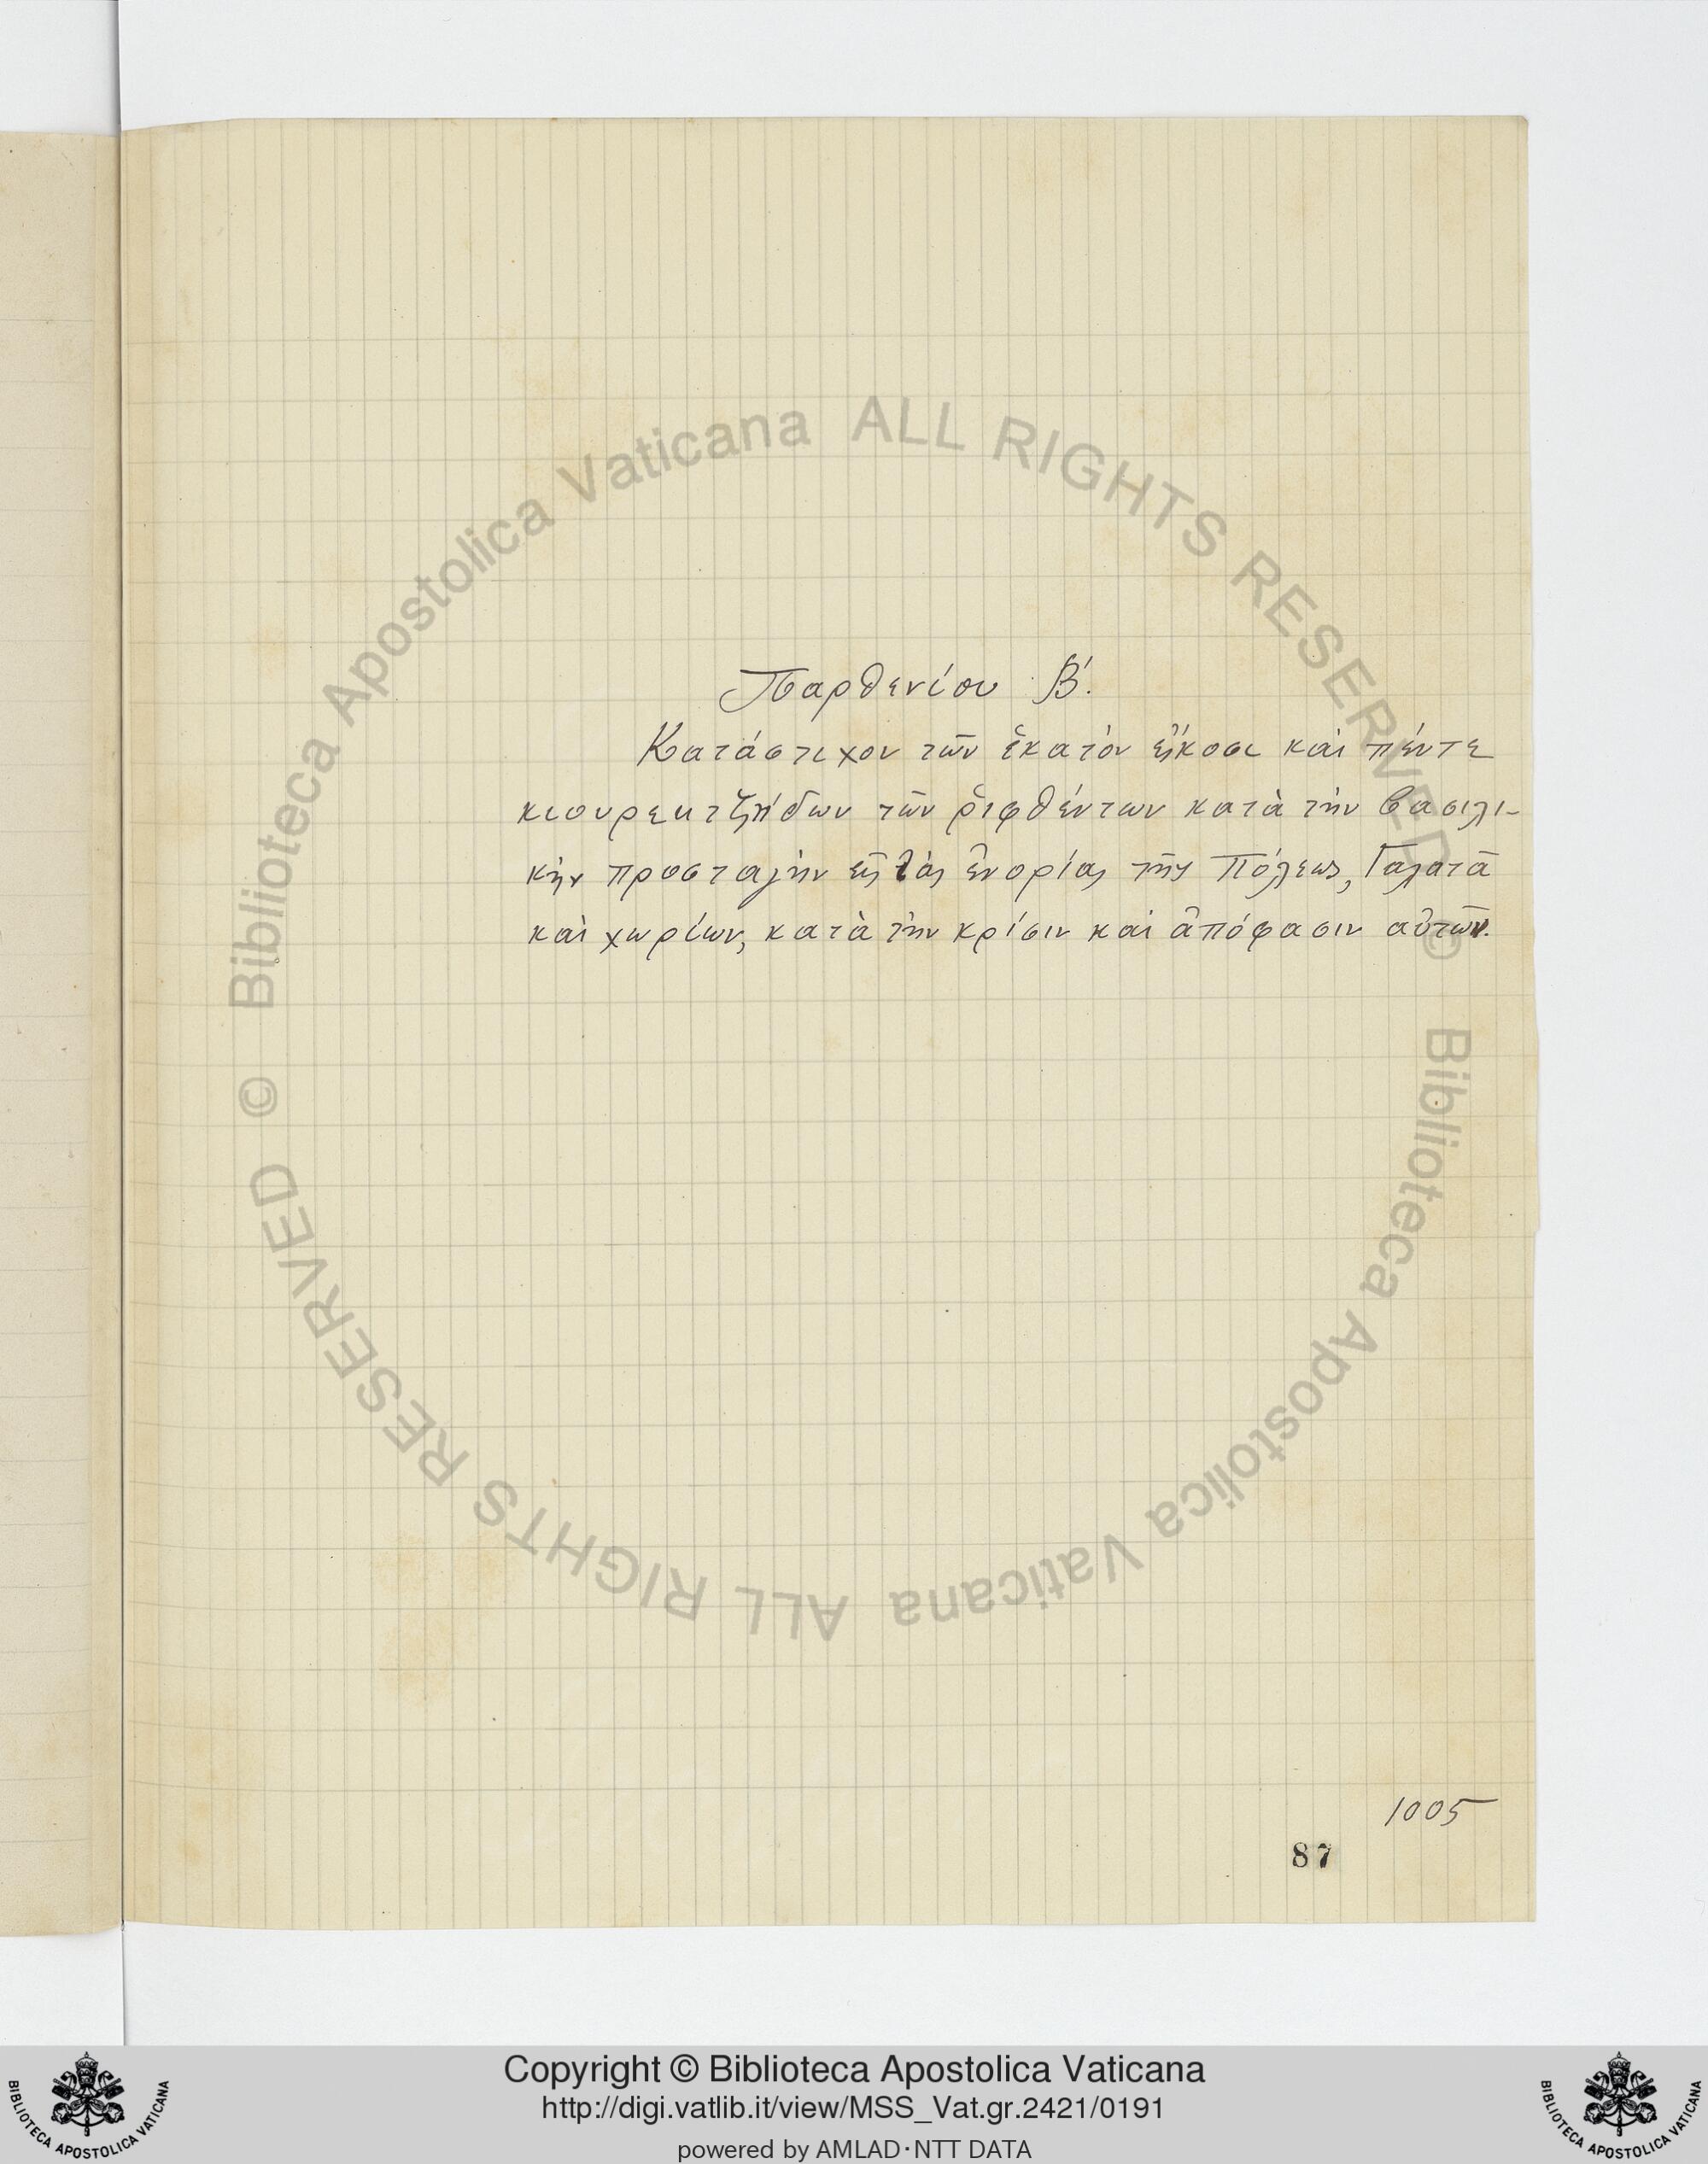 Παρθενίου Β΄.
Κατάστιχον τῶν ἑκατὸν εἴκοσι καὶ πέντε
κιουρεκτζήδων τῶν ῥιφθέντων κατὰ τὴν βασιλι-
κὴν προσταγὴν εἰς τὰς ἐνορίας τῆς Πόλεως, Γαλατᾶ
καὶ χωρίων, κατὰ τὴν κρίσιν καὶ ἀπόφασιν αὐτῶν.
1005
87
© Biblioteca Apostolica Vaticana ALL RIGHTS RESERVED
© Biblioteca Apostolica Vaticana ALL RIGHTS RESERVED
Copyright © Biblioteca Apostolica Vaticana
http://digi.vatlib.it/view/MSS_Vat.gr.2421/0191
powered by AMLAD·NTT DATA
BIBLIOTECA APOSTOLICA VATICANA
BIBLIOTECA APOSTOLICA VATICANA